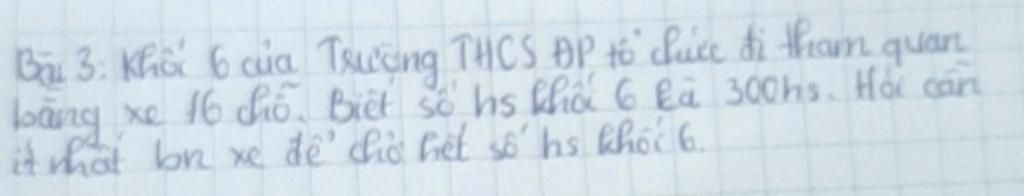 Bài 3: Khối 6 của Trường THCS ĐP tổ chức đi tham quan
bằng xe 16 chỗ. Biết số hs khối 6 là 300hs. Hỏi cần
ít nhất bn xe để chở hết số hs khối 6.